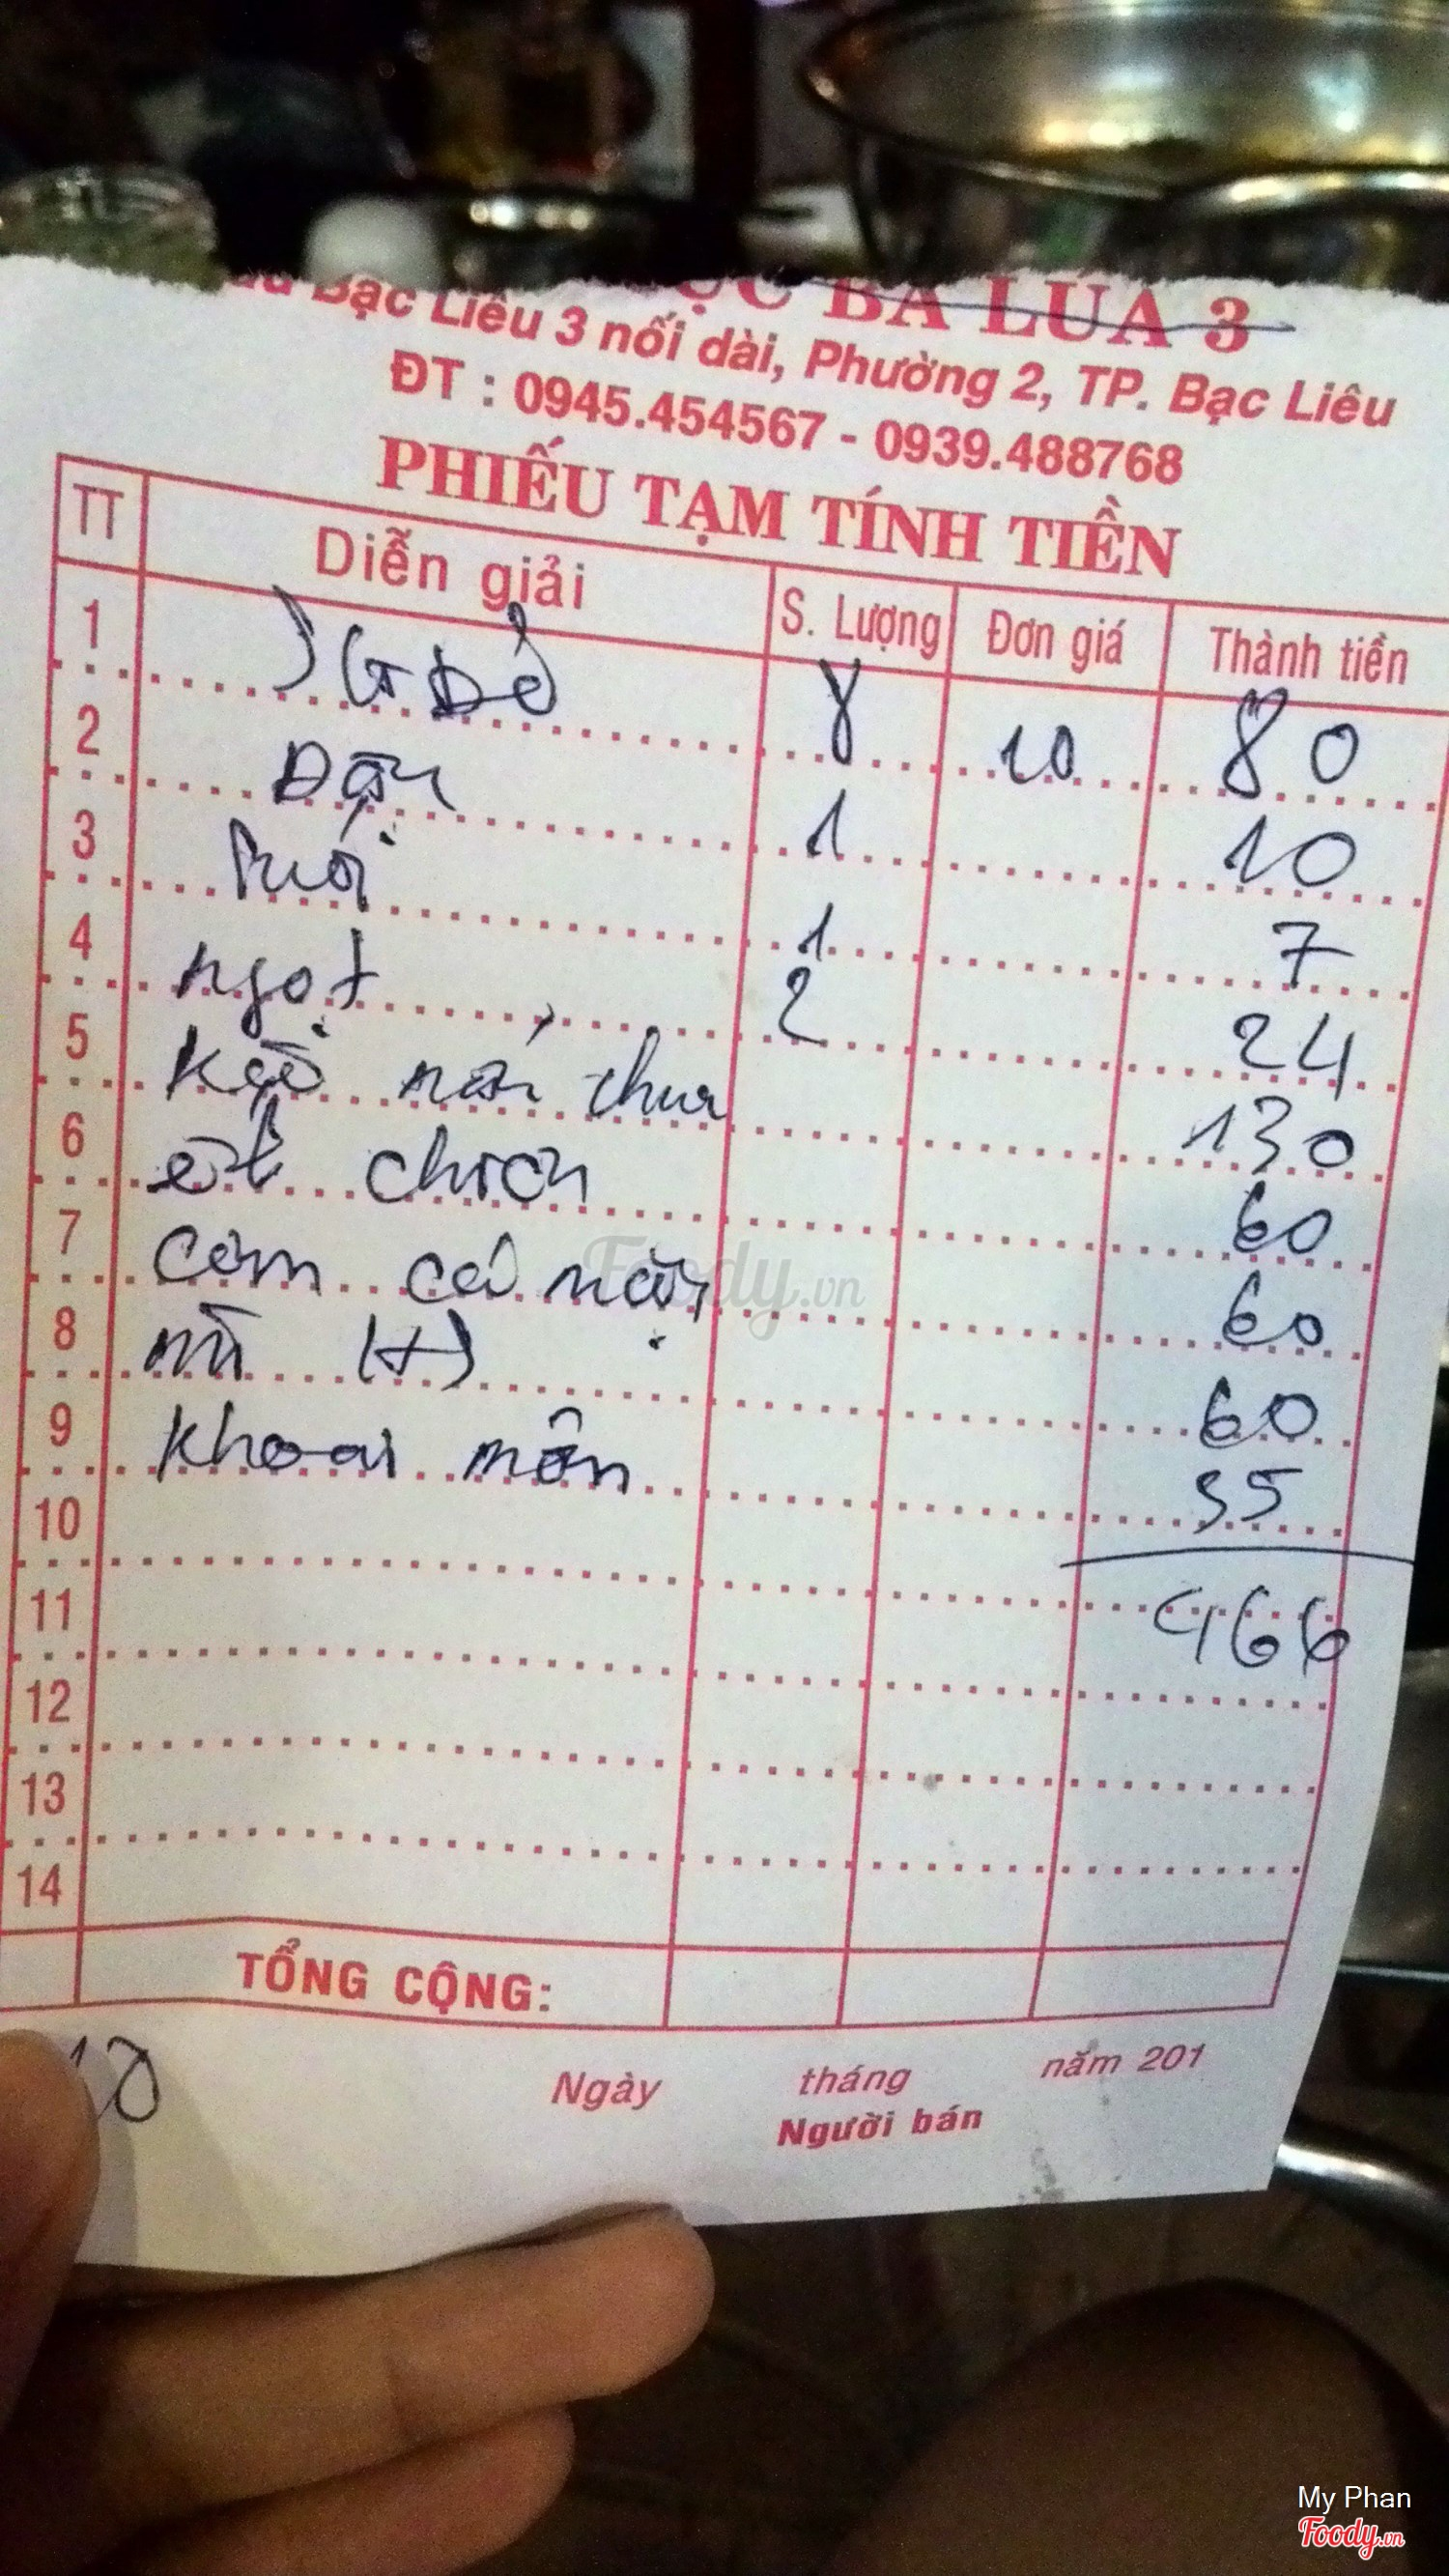 ỤC BA LÚA 3
Bạc Liêu 3 nối dài, Phường 2, TP. Bạc Liêu
ĐT : 0945.454567 - 0939.488768
PHIẾU TẠM TÍNH TIỀN
TT Diễn giải S. Lượng Đơn giá Thành tiền
1 SG Đỏ 8 10 80
2 Dâu 1 10
3 Suối 1 7
4 ngọt 2 24
5 kèo nấu chua 130
6 chiên 60
7 cơm cá mặn 60
8 mì (+) 60
9 khoai môn 35
10
466
11
12
13
14
TỔNG CỘNG:
Ngày tháng năm 201
Người bán
Foody.vn
My Phan
Foody.vn